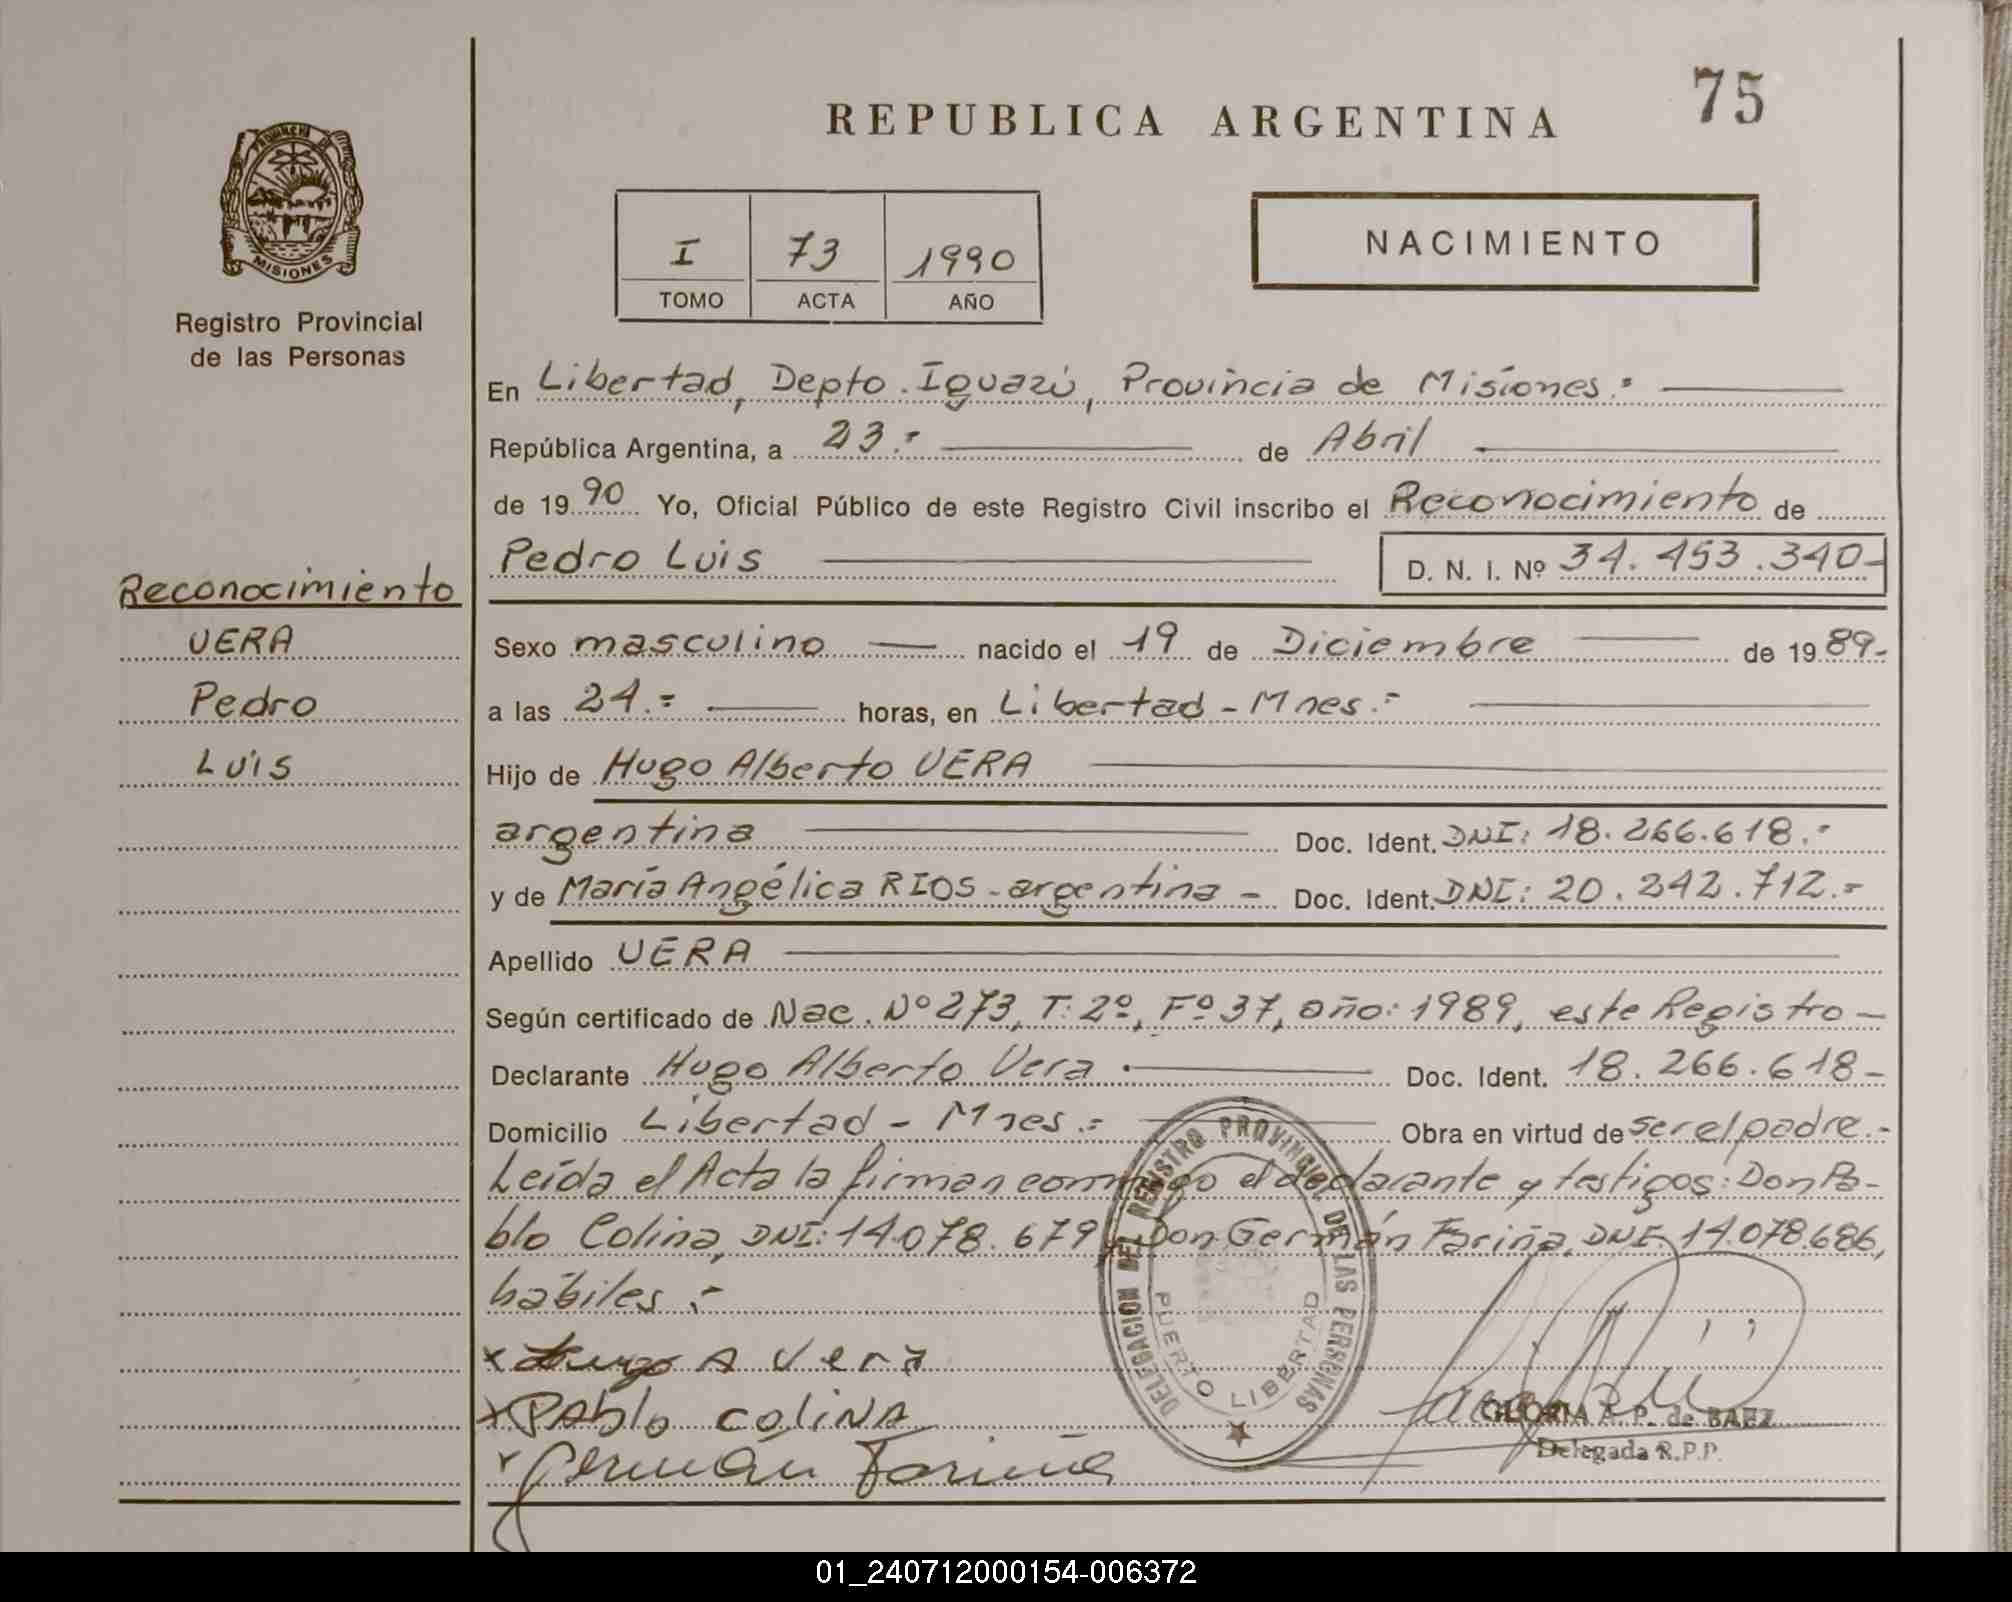 75
REPUBLICA ARGENTINA
PROVINCIA DE
MISIONES
Registro Provincial
de las Personas
I 73 1990
TOMO ACTA AÑO
NACIMIENTO
En Libertad, Depto. Iguazú, Provincia de Misiones.-
República Argentina, a 23.- de Abril
de 1990 Yo, Oficial Público de este Registro Civil inscribo el Reconocimiento de
Pedro Luis D. N. I. Nº 34.453.340-
Reconocimiento
VERA
Pedro
Luis
Sexo masculino nacido el 19 de Diciembre de 1989.-
a las 24.= horas, en Libertad - Mnes.-
Hijo de Hugo Alberto VERA
argentina Doc. Ident. DNI: 18.266.618.-
y de María Angélica RIOS - argentina - Doc. Ident. DNI: 20.242.712.-
Apellido VERA
Según certificado de Nac. Nº 273, T: 2º, Fº 37, año: 1989, este Registro -
Declarante Hugo Alberto Vera . Doc. Ident. 18.266.618-
Domicilio Libertad - Mnes.= Obra en virtud de ser el padre.-
Leída el Acta la firman conmigo el declarante y testigos: Don Pa-
blo Colina, DNI: 14.078.679 y Don Germán Fariña, DNI: 14.078.686,
hábiles.-
x Hugo A Vera
x Pablo Colina
x Germán Fariña
DELEGACION DEL REGISTRO PROVINCIAL DE LAS PERSONAS
PUERTO LIBERTAD
GLORIA A. P. de BAEZ
Delegada R.P.P.
01_240712000154-006372